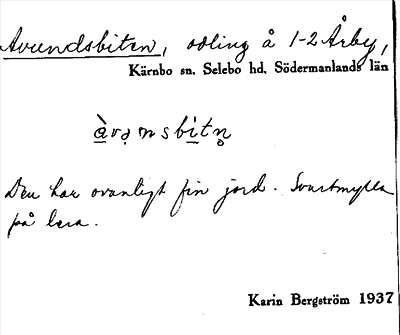 Avundsbiten, odling å 1-2 Årby,
Kärnbo sn. Selebo hd. Södermanlands län
à̱vąnsbi̱tn̥
Den har ovanligt fin jord. Svartmylla
på lera.
Karin Bergström 1937